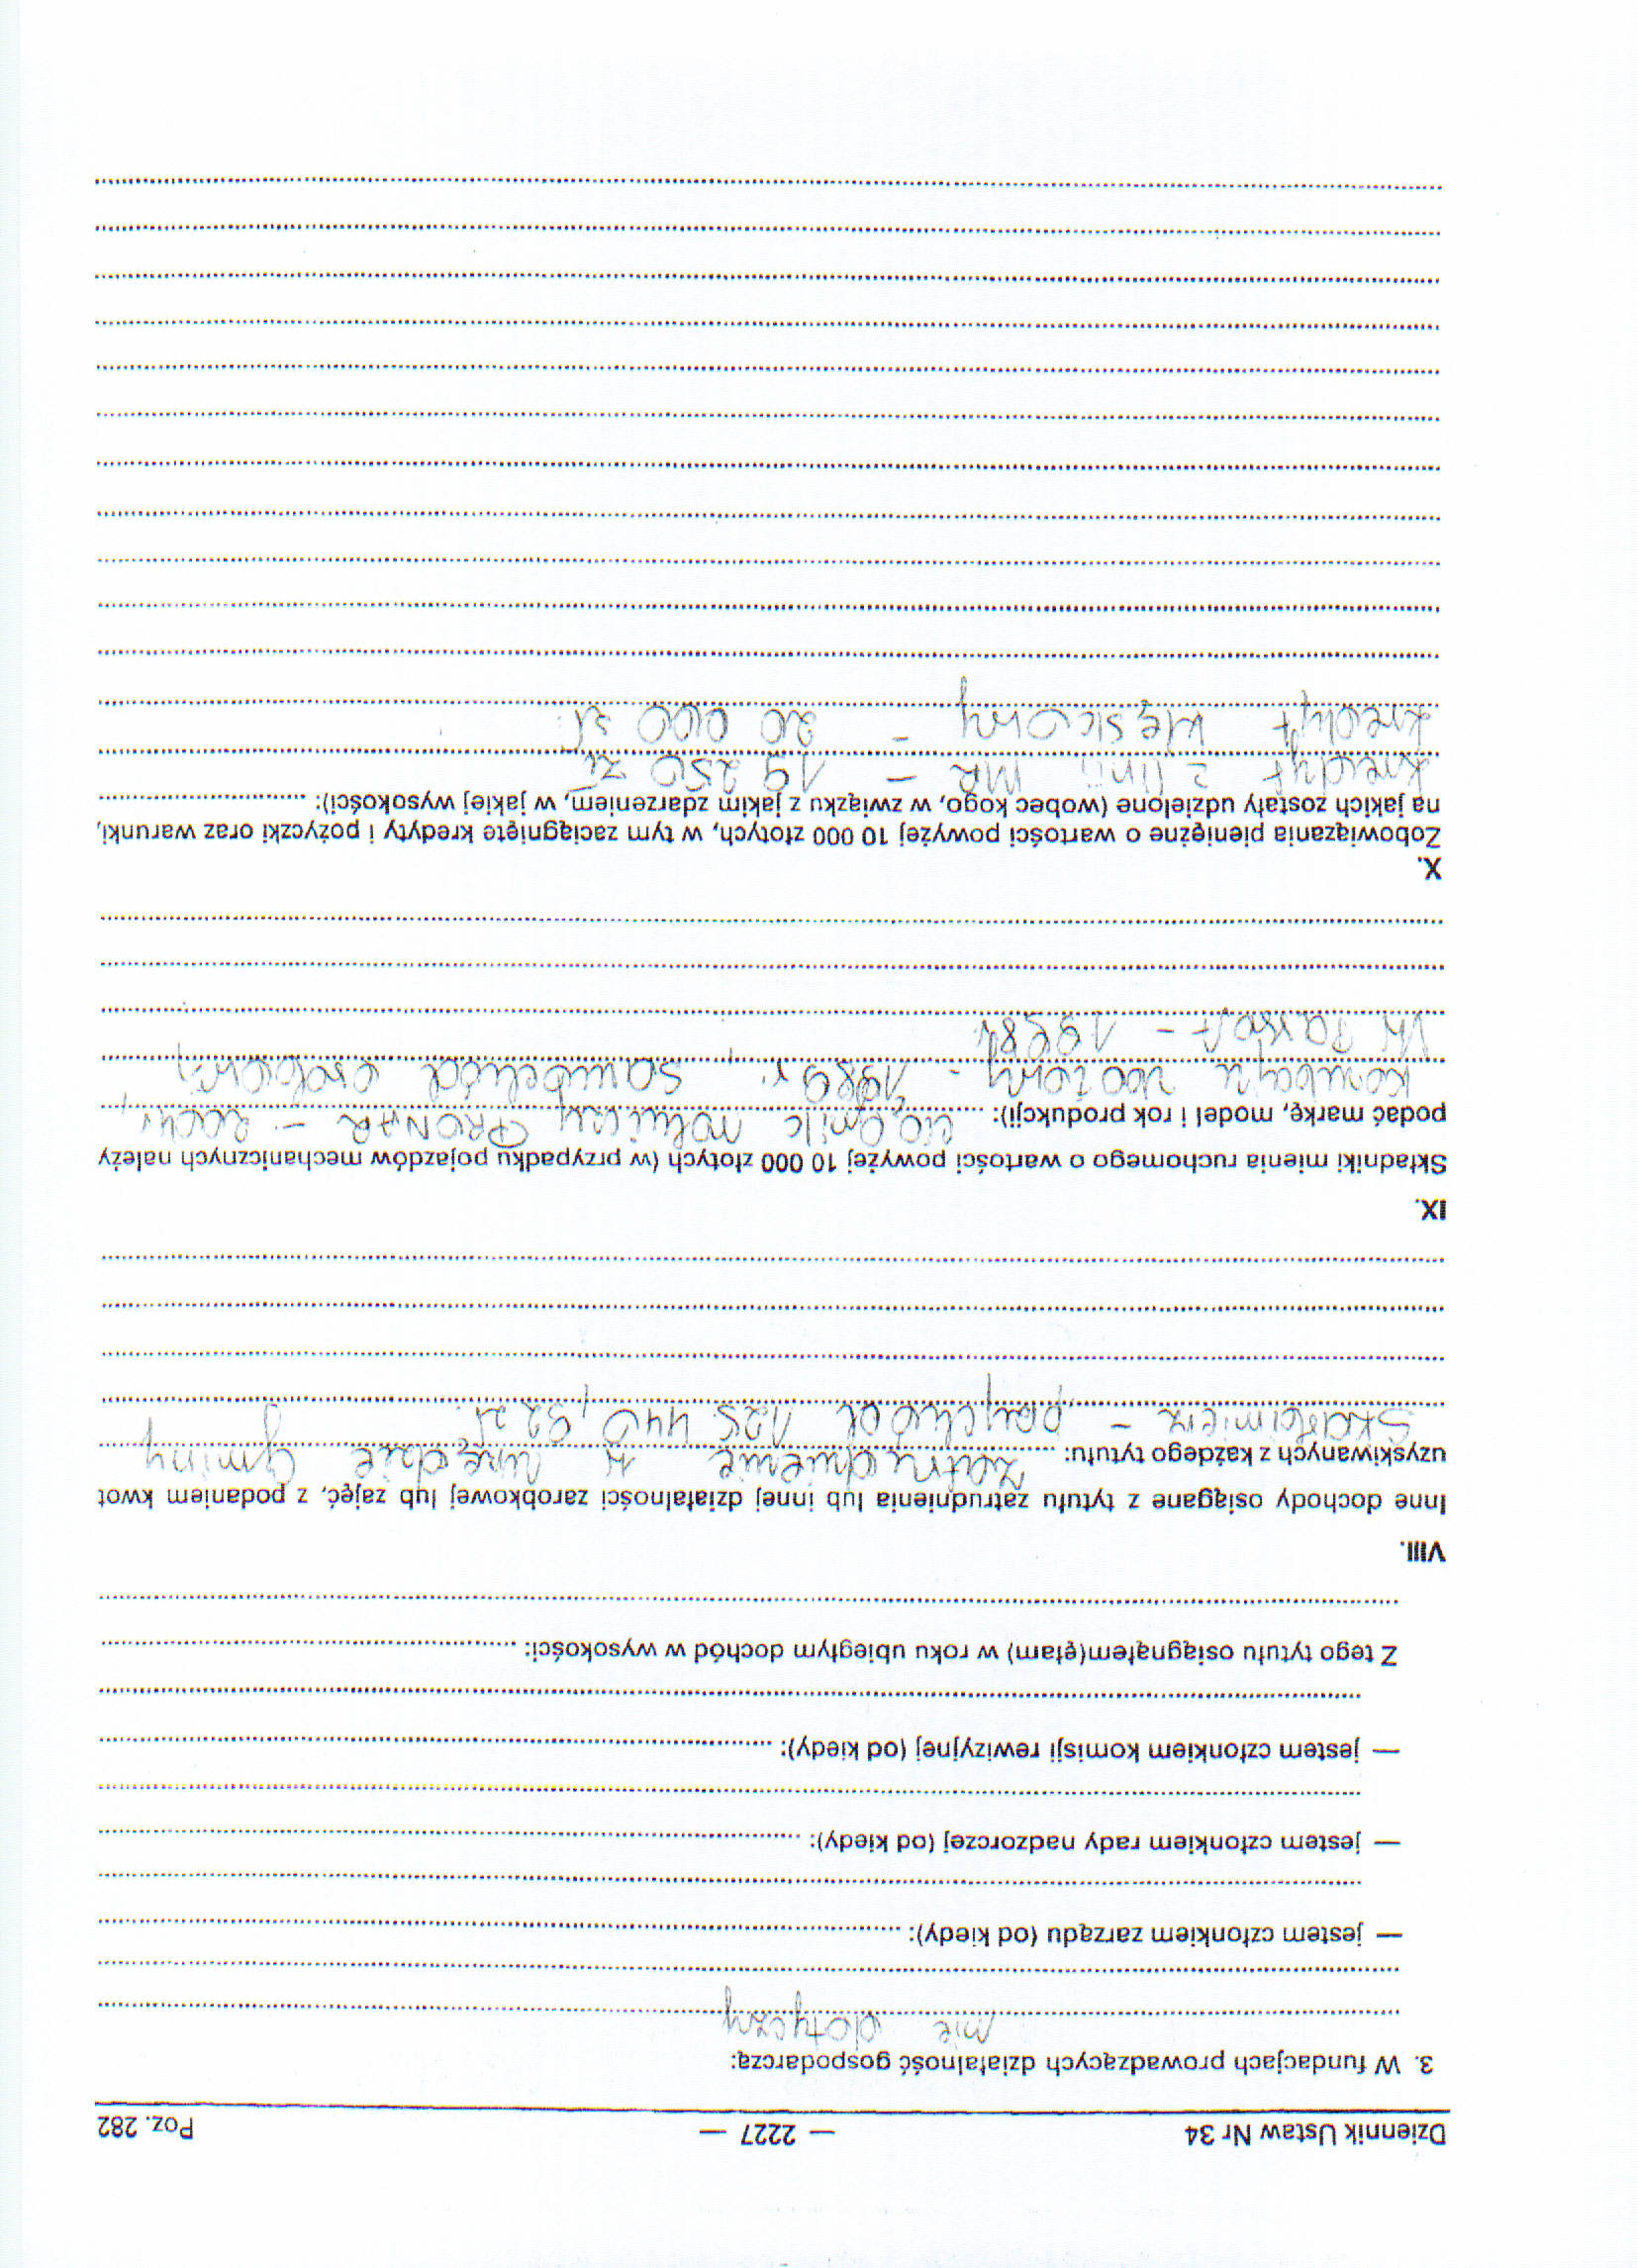 Dziennik Ustaw Nr 34 — 2227 — Poz. 282
3. W fundacjach prowadzących działalność gospodarczą:
nie dotyczy
— jestem członkiem zarządu (od kiedy):
— jestem członkiem rady nadzorczej (od kiedy):
— jestem członkiem komisji rewizyjnej (od kiedy):
Z tego tytułu osiągnąłem(ęłam) w roku ubiegłym dochód w wysokości:
VIII.
Inne dochody osiągane z tytułu zatrudnienia lub innej działalności zarobkowej lub zajęć, z podaniem kwot
uzyskiwanych z każdego tytułu: zatrudnienie w Urzędzie Gminy
Skarbimierz - przychód 125.440,92 zł.
IX.
Składniki mienia ruchomego o wartości powyżej 10 000 złotych (w przypadku pojazdów mechanicznych należy
podać markę, model i rok produkcji): ciągnik rolniczy PRONAR -
kombajn zbożowy - 1989 r., samochód osobowy
VW Passat - 1998r.
X.
Zobowiązania pieniężne o wartości powyżej 10 000 złotych, w tym zaciągnięte kredyty i pożyczki oraz warunki,
na jakich zostały udzielone (wobec kogo, w związku z jakim zdarzeniem, w jakiej wysokości):
kredyt z linii MR - 19 250 zł
kredyt klęskowy - 20 000 zł.